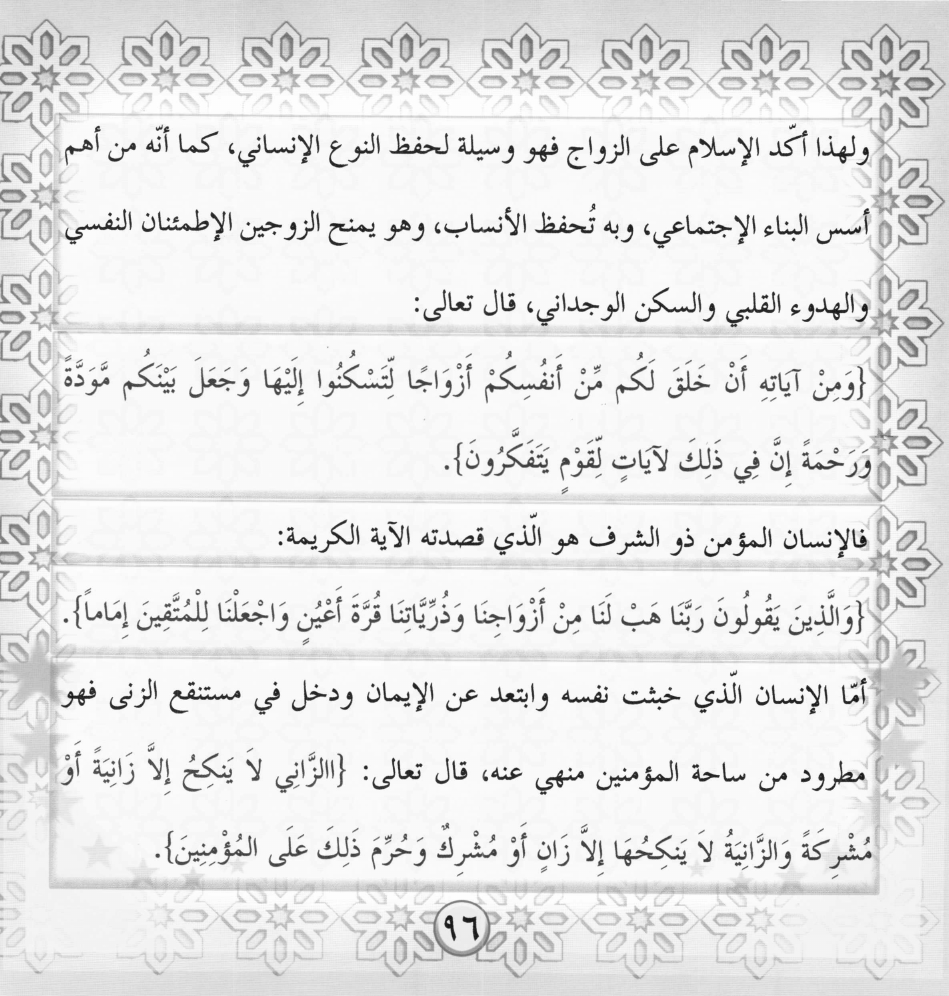 ولهذا أكّد الإسلام على الزواج فهو وسيلة لحفظ النوع الإنساني، كما أنّه من أهم
أسس البناء الإجتماعي، وبه تُحفظ الأنساب، وهو يمنح الزوجين الإطمئنان النفسي
والهدوء القلبي والسكن الوجداني، قال تعالى:
{وَمِنْ آيَاتِهِ أَنْ خَلَقَ لَكُم مِّنْ أَنفُسِكُمْ أَزْوَاجًا لِّتَسْكُنُوا إِلَيْهَا وَجَعَلَ بَيْنَكُم مَّوَدَّةً
وَرَحْمَةً إِنَّ فِي ذَلِكَ لآيَاتٍ لِّقَوْمٍ يَتَفَكَّرُونَ}.
فالإنسان المؤمن ذو الشرف هو الّذي قصدته الآية الكريمة:
{وَالَّذِينَ يَقُولُونَ رَبَّنَا هَبْ لَنَا مِنْ أَزْوَاجِنَا وَذُرِّيَّاتِنَا قُرَّةَ أَعْيُنٍ وَاجْعَلْنَا لِلْمُتَّقِينَ إِمَاماً}.
أمّا الإنسان الّذي خبثت نفسه وابتعد عن الإيمان ودخل في مستنقع الزنى فهو
مطرود من ساحة المؤمنين منهي عنه، قال تعالى: {االزَّانِي لاَ يَنكِحُ إِلاَّ زَانِيَةً أَوْ
مُشْرِكَةً وَالزَّانِيَةُ لاَ يَنكِحُهَا إِلاَّ زَانٍ أَوْ مُشْرِكٌ وَحُرِّمَ ذَلِكَ عَلَى المُؤْمِنِينَ}.
٩٦